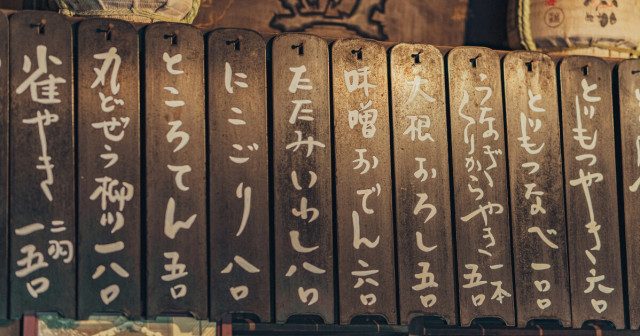 とりもつやき 六〇
とりもつなべ 一〇〇
うなぎ
くりからやき 一本
五〇
大根おろし 五〇
味噌おでん 六〇
たたみいわし 八〇
にこごり 八〇
ところてん 五〇
丸どぜう柳川 一八〇
雀やき 二羽
一五〇